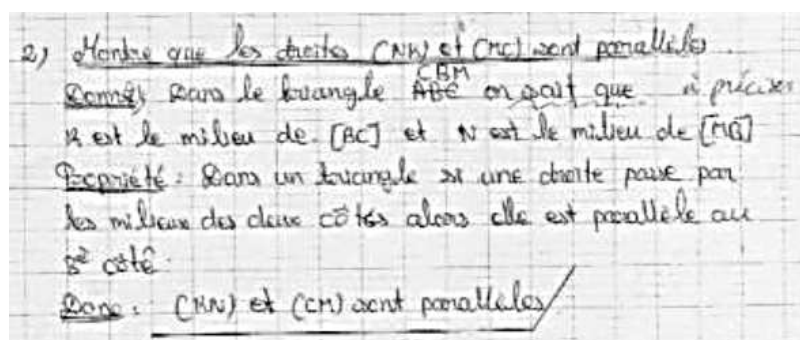 2) Montre que les droites (NK) et (MC) sont parallèles.
CBM
Donné) Dans le triangle ABC on sait que à préciser
K est le milieu de [BC] et N est le milieu de [MB]
Propriété : Dans un triangle si une droite passe par
les milieux des deux côtés alors elle est parallèle au
3e côté.
Donc : (KN) et (CM) sont parallèles